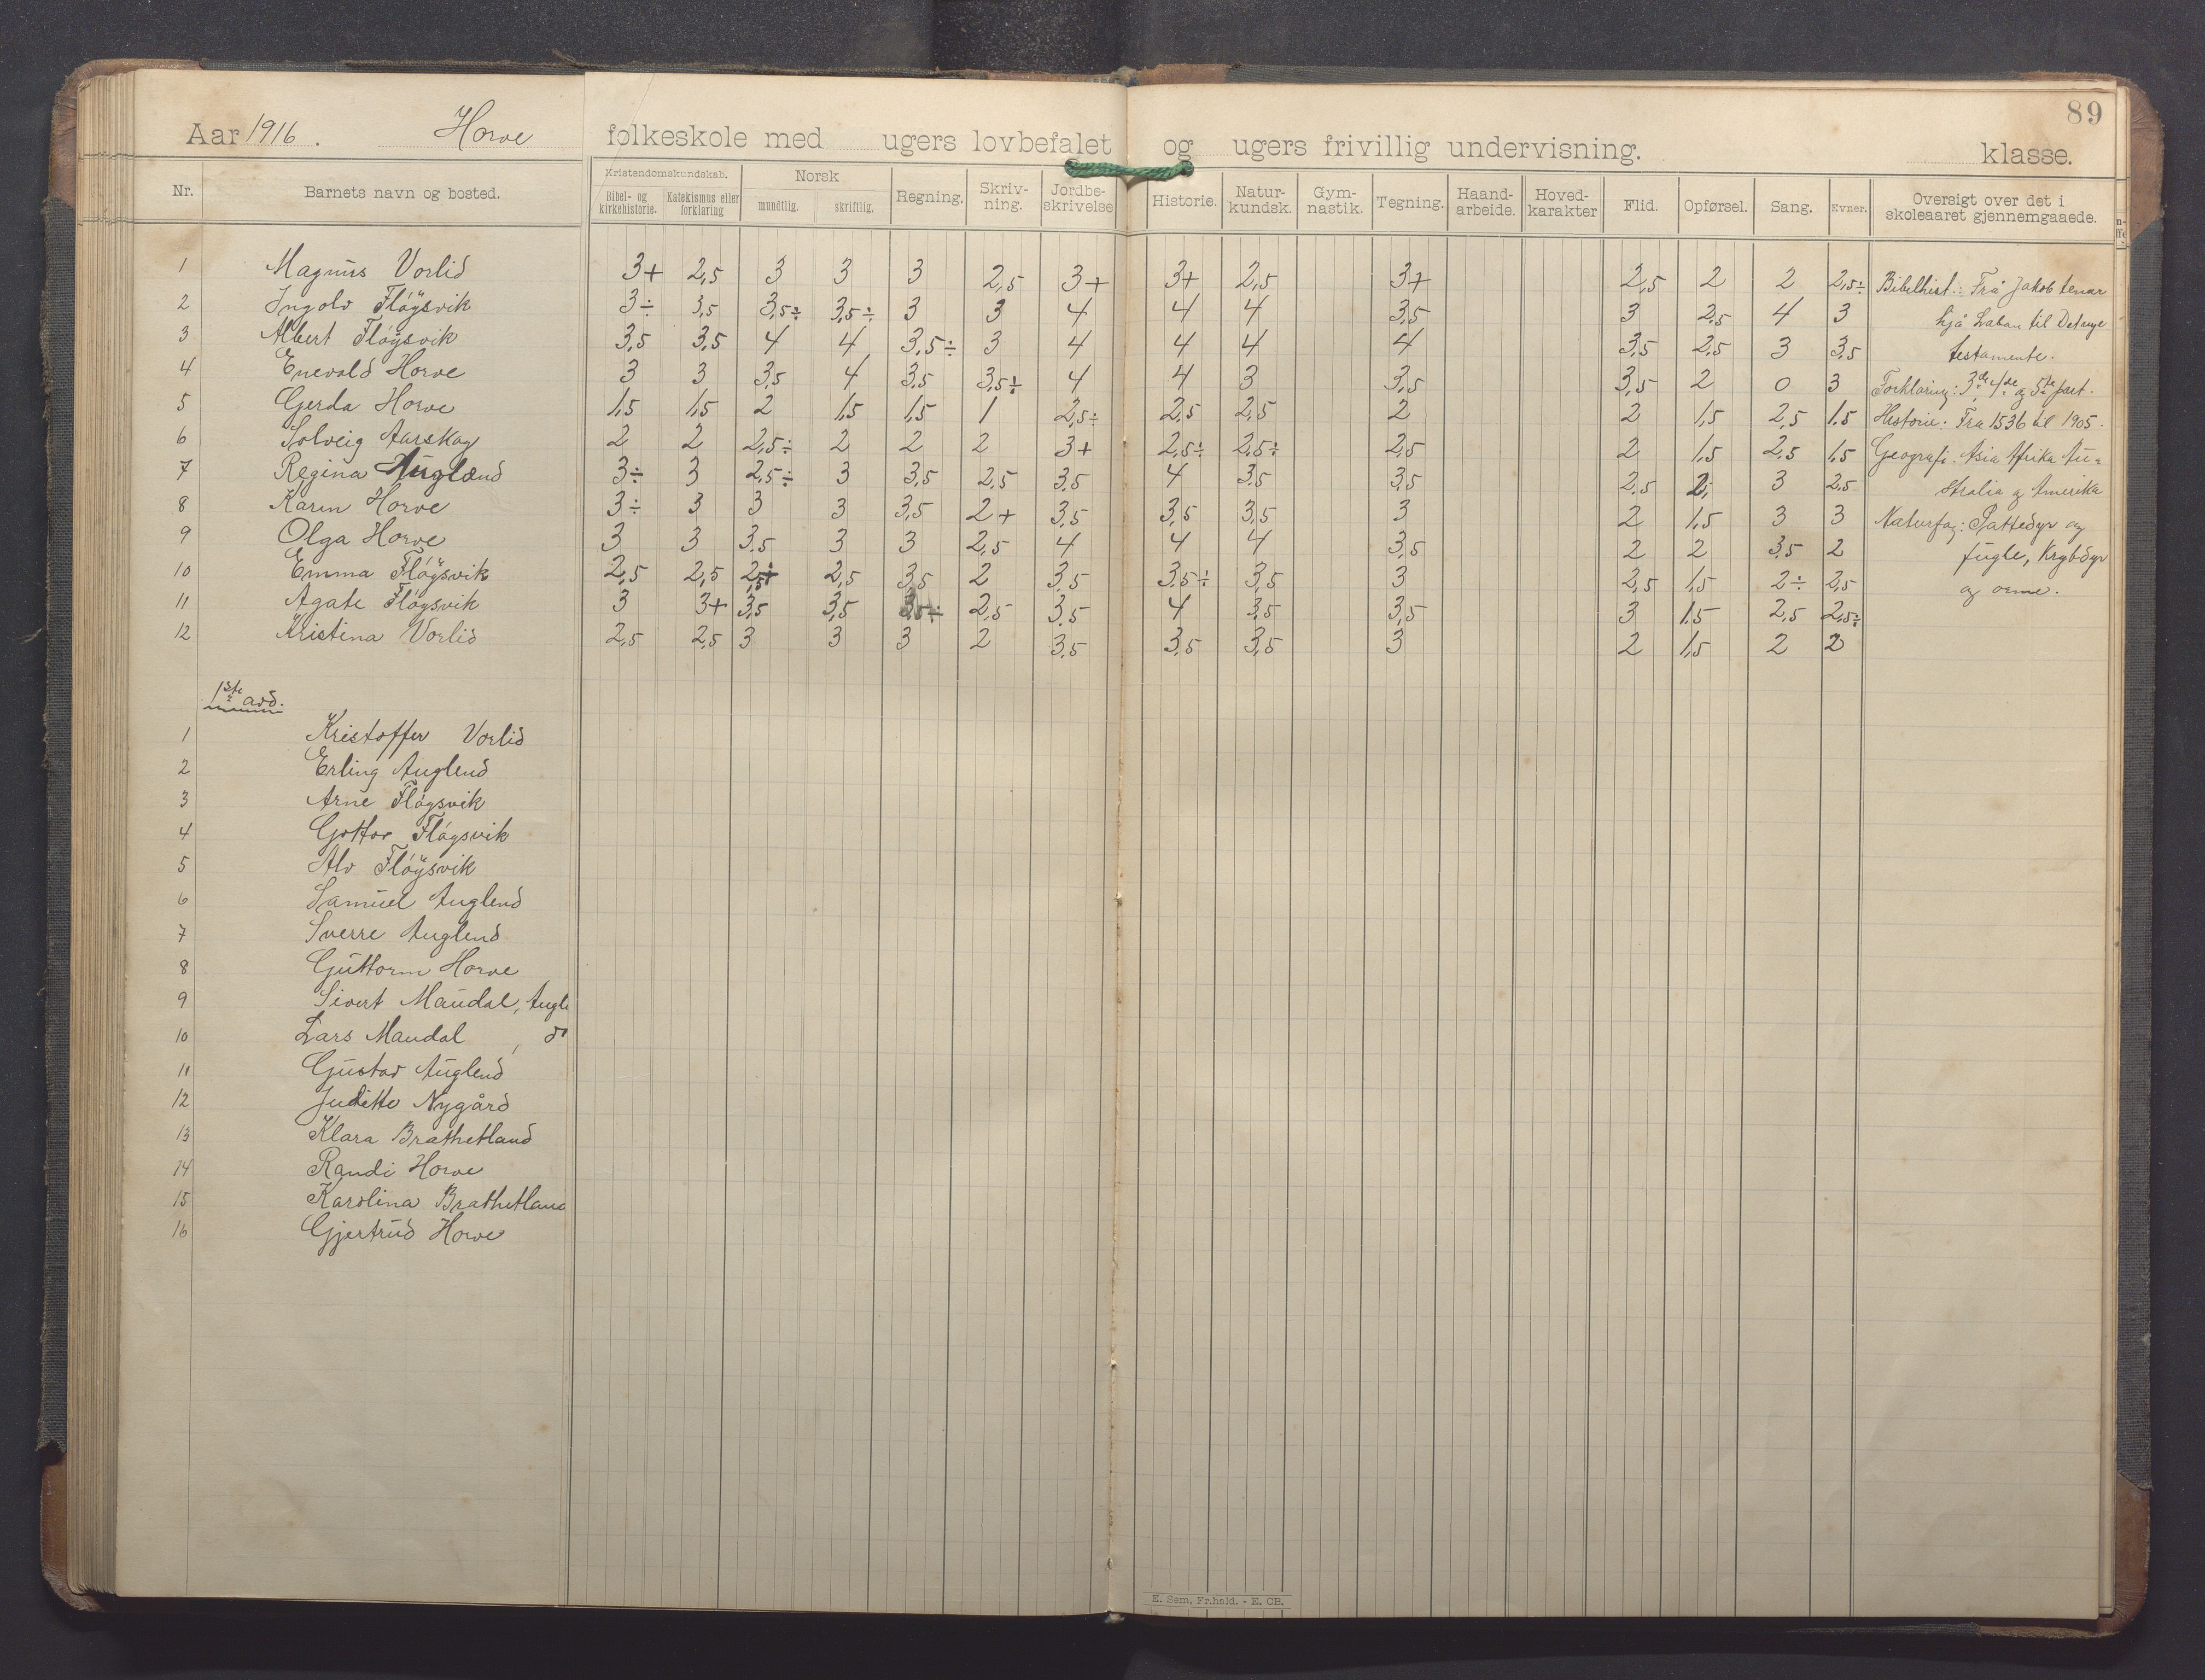 89
Aar 1916. Horve folkeskole med ugers lovbefalet og ugers frivillig undervisning. klasse.
Nr. Barnets navn og bosted. Kristendomskundskab. Bibel- og kirkehistorie. Katekismus eller forklaring Norsk mundtlig. skriftlig. Regning. Skriv-ning. Jordbe-skrivelse Historie. Natur-kundsk. Gym-nastik. Tegning. Haand-arbeide. Hoved-karakter Flid. Opførsel. Sang. Evner. Oversigt over det i skoleaaret gjennemgaaede.
1 Magnus Vorlid 3+ 2,5 3 3 3 2,5 3+ 3+ 2,5 3+ 2,5 2 2 2,5÷ Bibelhist.: Frå Jakob tenar
2 Ingolv Fløysvik 3÷ 3,5 3,5÷ 3,5÷ 3 3 4 4 4 3,5 3 2,5 4 3 hjå Laban til Det nye
3 Albert Fløysvik 3,5 3,5 4 4 3,5÷ 3 4 4 4 4 3,5 2,5 3 3,5 testamente.
4 Enevald Horve 3 3 3,5 4 3,5 3,5÷ 4 4 3 3,5 3,5 2 0 3 Forklaring: 3de 4de og 5te part.
5 Gerda Horve 1,5 1,5 2 1,5 1,5 1 2,5÷ 2,5 2,5 2 2 1,5 2,5 1,5 Historie: Fra 1536 til 1905.
6 Solveig Aarskog 2 2 2,5÷ 2 2 2 3+ 2,5÷ 2,5÷ 2,5 2 1,5 2,5 1,5 Geografi. Asia Afrika Au-
7 Regina Auglænd 3÷ 3 2,5÷ 3 3,5 2,5 3,5 4 3,5 3,5 2,5 2 3 2,5 stralia og Amerika
8 Karin Horve 3÷ 3 3 3 3,5 2+ 3,5 3,5 3,5 3 2 1,5 3 3 Naturfag: Pattedyr og
9 Olga Horve 3 3 3,5 3 3 2,5 4 4 4 3,5 2 2 3,5 2 fugle, Krybdyr
10 Emma Fløysvik 2,5 2,5 2,5÷ 2,5 3,5 2 3,5 3,5÷ 3,5 3 2,5 1,5 2÷ 2,5 og orme.
11 Agate Fløysvik 3 3+ 3,5 3,5 3,5÷ 2,5 3,5 4 3,5 3,5 3 1,5 2,5 2,5÷
12 Kristina Vorlid 2,5 2,5 3 3 3 2 3,5 3,5 3,5 3 2 1,5 2 2
1ste avd.
1 Kristoffer Vorlid
2 Erling Auglend
3 Arne Fløysvik
4 Gottor Fløysvik
5 Alv Fløysvik
6 Samuel Auglend
7 Sverre Auglend
8 Guttorm Horve
9 Sivert Maudal, Augle
10 Lars Maudal, do
11 Gustav Auglend
12 Juditte Nygård
13 Klara Brathetland
14 Randi Horve
15 Karolina Brathetland
16 Gjertrud Horve
E. Sem, Fr.hald. - E. CB.